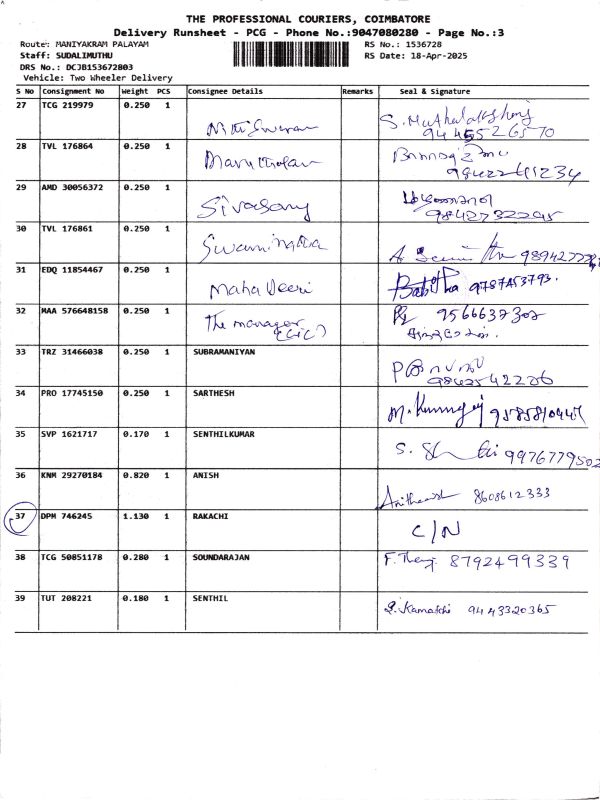 THE PROFESSIONAL COURIERS, COIMBATORE
Delivery Runsheet - PCG - Phone No.:9047080280 - Page No.:3
Route: MANIYAKRAM PALAYAM RS No.: 1536728
Staff: SUDALIMUTHU RS Date: 18-Apr-2025
DRS No.: DCJB153672803
Vehicle: Two Wheeler Delivery
S No Consignment No Weight PCS Consignee Details Remarks Seal & Signature
27 TCG 219979 0.250 1
28 TVL 176864 0.250 1
29 AMD 30056372 0.250 1
Sivasamy
9842732295
30 TVL 176861 0.250 1
31 EDQ 11854467 0.250 1
Maha Deeri Babitha 9787453793.
32 MAA 576648158 0.250 1
The manager 9566637302
(LIC)
33 TRZ 31466038 0.250 1 SUBRAMANIYAN
9842542226
34 PRO 17745150 0.250 1 SARTHESH
35 SVP 1621717 0.170 1 SENTHILKUMAR
9976779502
36 KNM 29270184 0.820 1 ANISH
8608612333
37 DPM 746245 1.130 1 RAKACHI
C/N
38 TCG 50851178 0.280 1 SOUNDARAJAN
8792499339
39 TUT 208221 0.180 1 SENTHIL
S. Kamatchi 9443320365